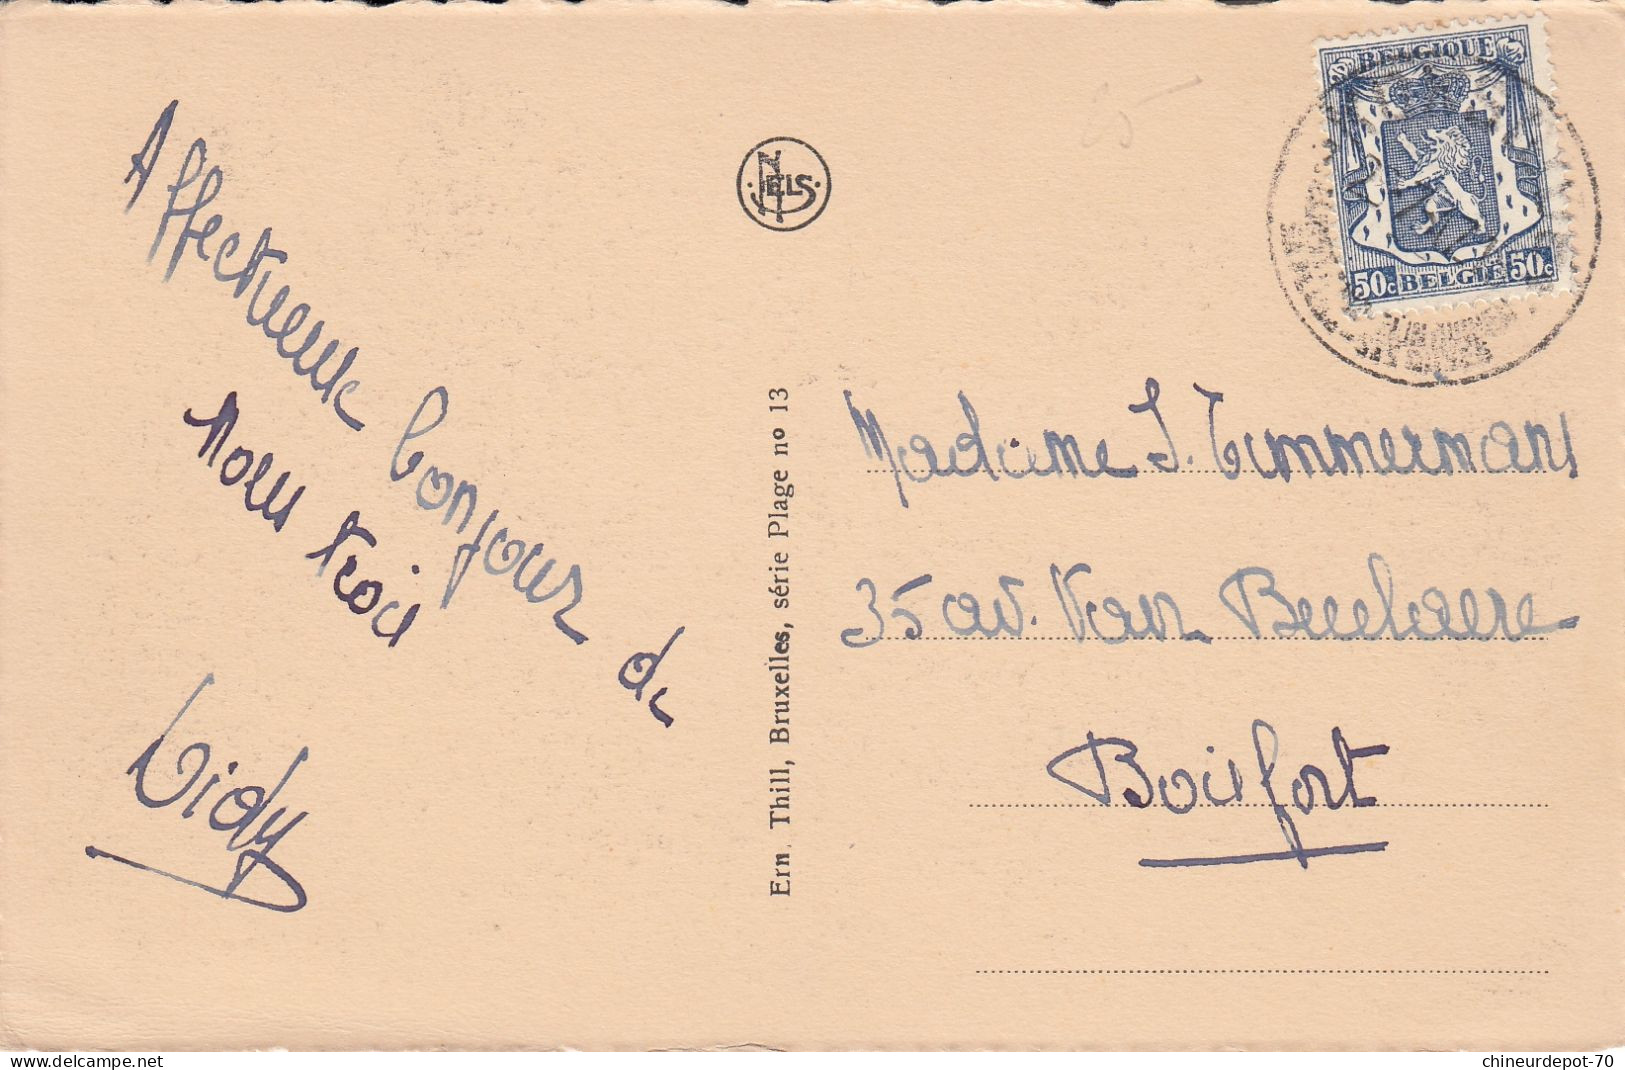 Affectueux bonjour de
nous trois
Lidy
NELS
Ern. Thill, Bruxelles, série Plage nº 13
BELGIQUE
50c BELGIE 50c
Madame J. Timmermans
35 av. Van Becelaere
Boisfort
25
delcampe.net
chineurdepot-70